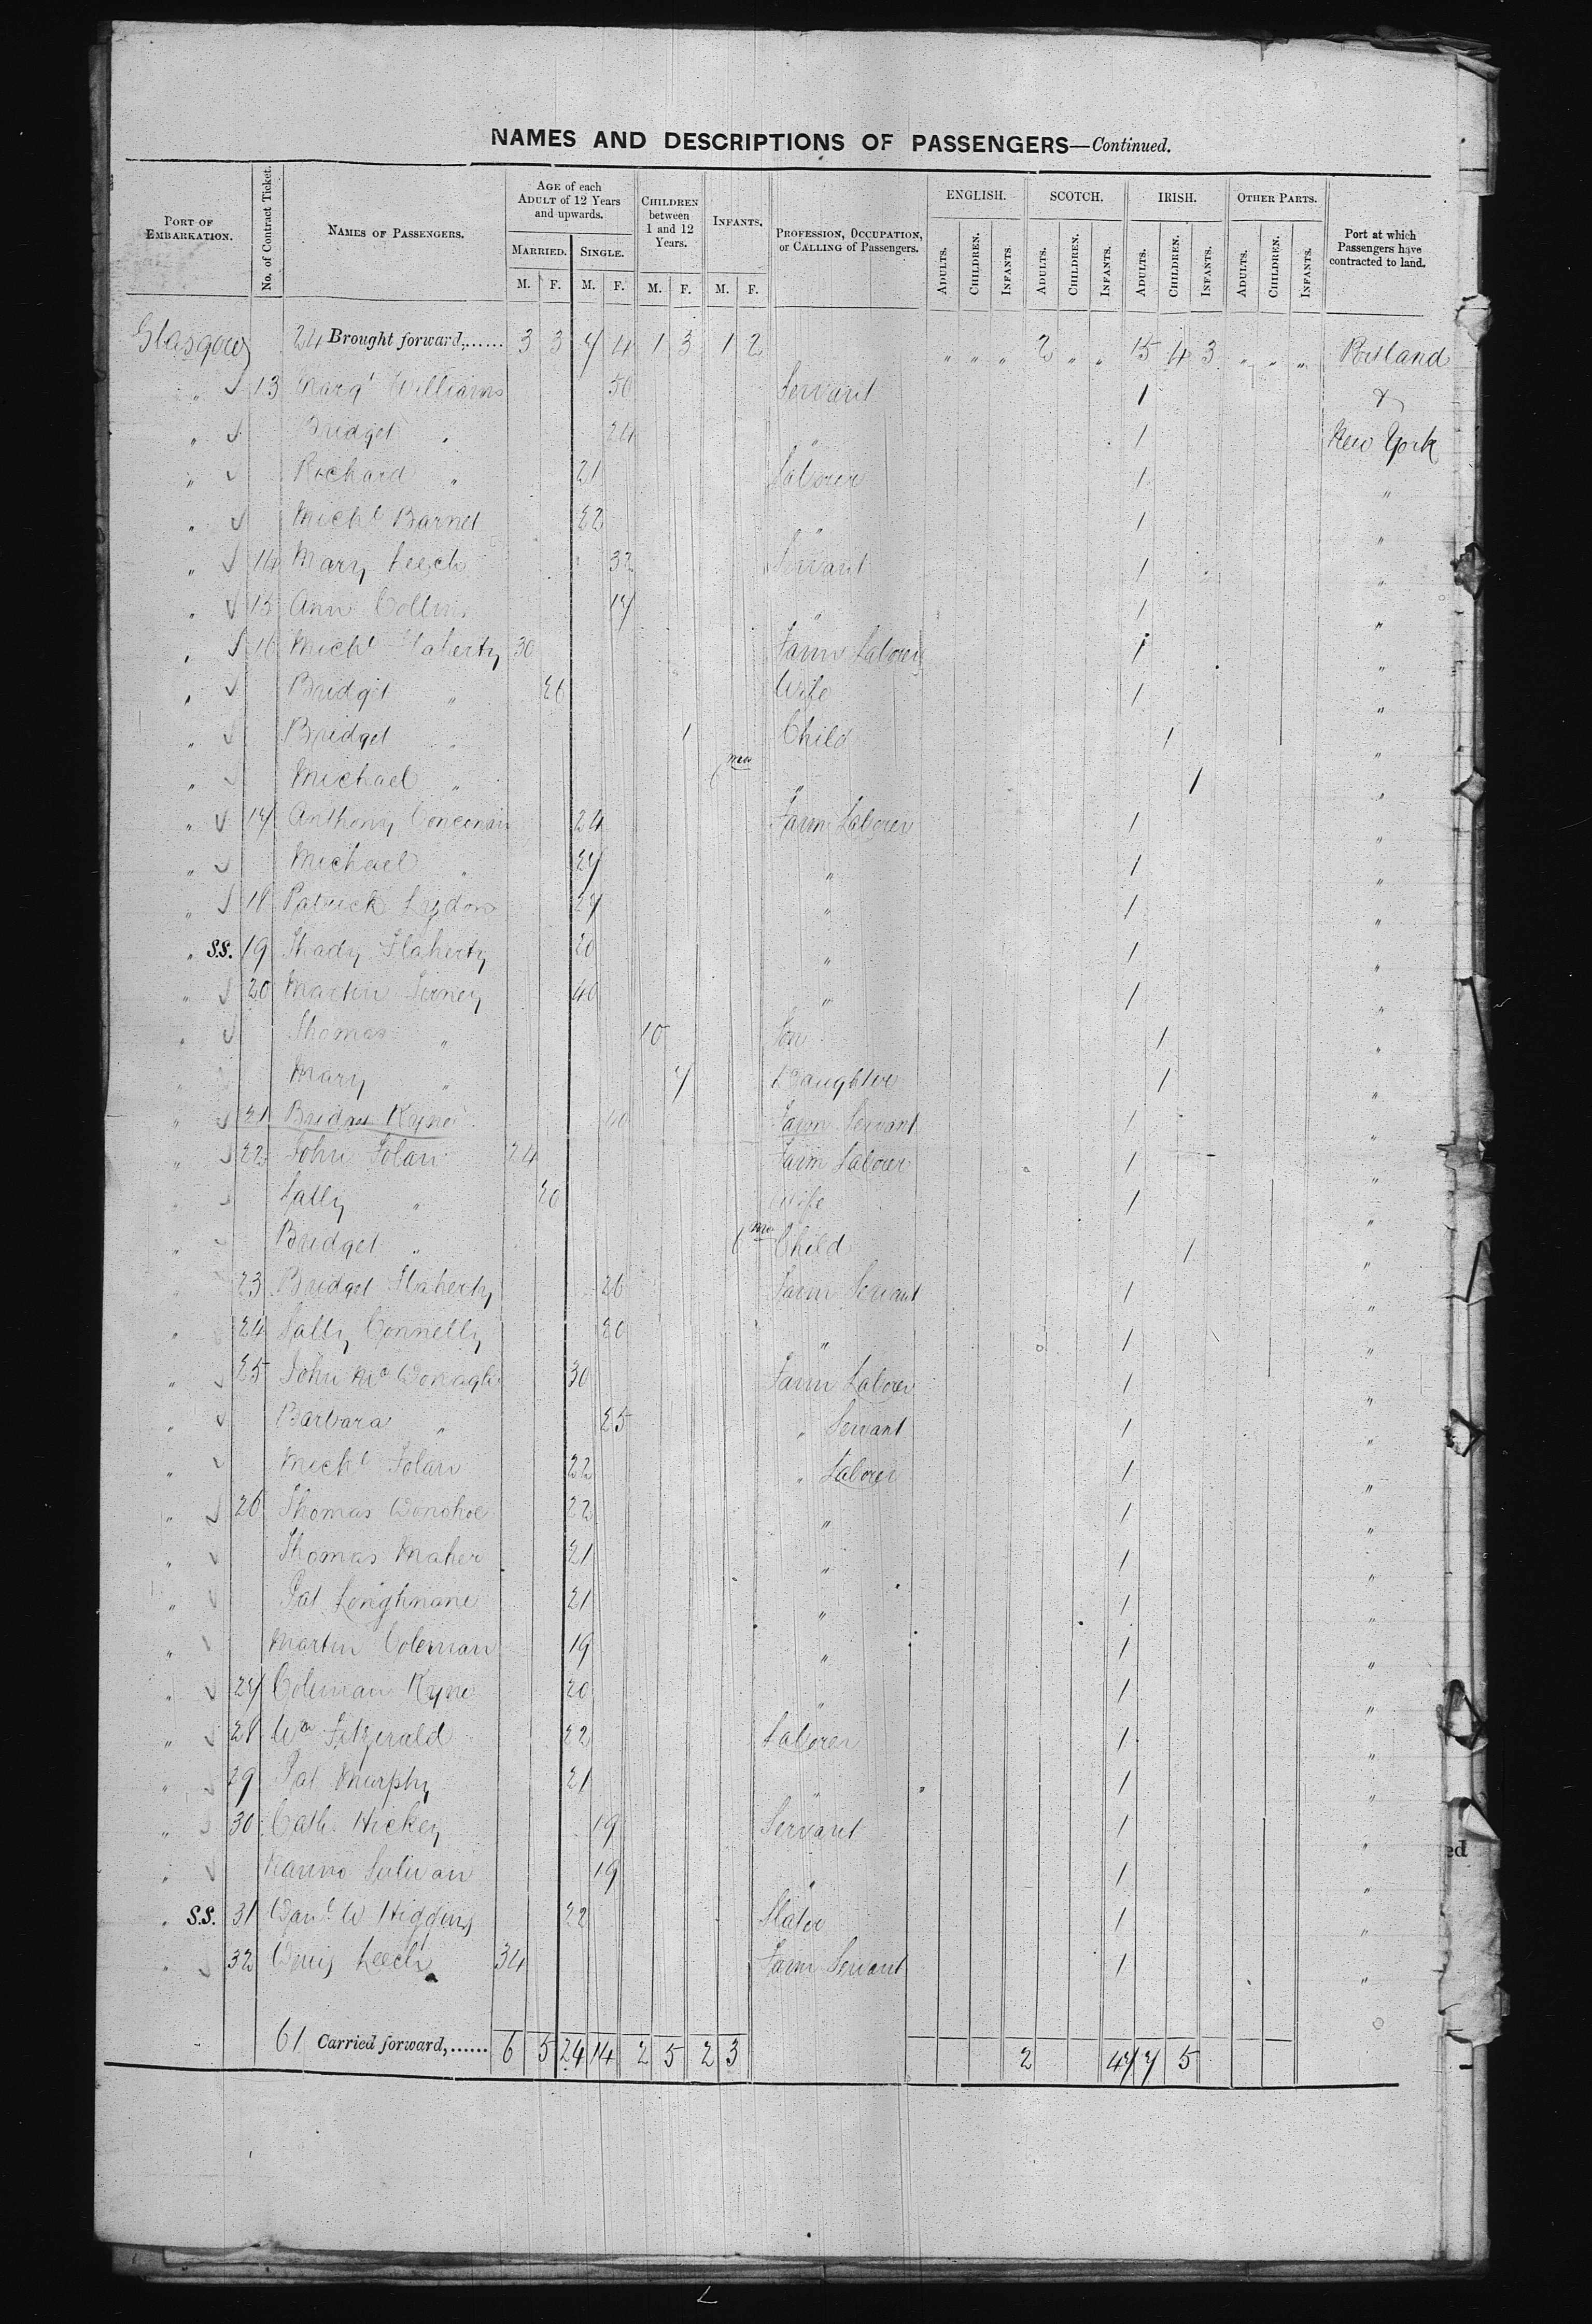 NAMES AND DESCRIPTIONS OF PASSENGERS—Continued.
PORT OF EMBARKATION. No. of Contract Ticket. NAMES OF PASSENGERS. AGE of each ADULT of 12 Years and upwards. CHILDREN between 1 and 12 Years. INFANTS. PROFESSION, OCCUPATION, or CALLING of Passengers. ENGLISH. SCOTCH. IRISH. OTHER PARTS. Port at which Passengers have contracted to land.
MARRIED. SINGLE.
M. F. M. F. M. F. M. F. ADULTS. CHILDREN. INFANTS. ADULTS. CHILDREN. INFANTS. ADULTS. CHILDREN. INFANTS. ADULTS. CHILDREN. INFANTS.
Glasgow 24 Brought forward,...... 3 3 7 4 1 3 1 2 " " " 2 " " 15 4 3 " " " Portland
" 13 Margt Williams 50 Servant 1 &
" Bridget " 24 " 1 New York
" Richard " 21 Laborer 1 "
" Michl Barnet 22 " 1 "
" 14 Mary Leech 32 Servant 1 "
" 15 Ann Collins 17 " 1 "
" 16 Michl Flaherty 30 Farm Laborer 1 "
" Bridgit " 26 Wife 1 "
" Bridget " 1 Child 1 "
" Michael " mo " 1 "
" 17 Anthony 24 Farm Laborer 1 "
" Michael " 27 " 1 "
" 18 Patrick Lydon 27 " 1 "
" S.S. 19 Thady Flaherty 20 " 1 "
" 20 Martin Tierney 40 " 1 "
" Thomas " 10 Son 1 "
" Mary " 7 Daughter 1 "
" 21 Bridget Kyne 40 Farm Servant 1 "
" 22 John Folan 24 Farm Laborer 1 "
" Sally " 20 Wife 1 "
" Bridget " 6 mo Child 1 "
" 23 Bridget Flaherty 20 Farm Servant 1 "
" 24 Sally Connelly 20 " 1 "
" 25 John Mc Donagh 30 Farm Laborer 1 "
" Barbara " 25 " Servant 1 "
" Michl Folan 22 " Laborer 1 "
" 26 Thomas Donohoe 22 " 1 "
" Thomas Maher 21 " 1 "
" Pat Loughnane 21 " 1 "
" Martin Coleman 19 " 1 "
" 27 Coleman Kyne 20 " 1 "
" 28 Wm Fitzgerald 22 Laborer 1 "
" 29 Pat Murphy 21 " 1 "
" 30 Cath Hickey 19 Servant 1 "
" Sulivan 19 " 1 "
" S.S. 31 Danl W Higgins 22 Slater 1 "
" 32 Denis Leech 34 Farm Servant 1 "
61 Carried forward,...... 6 5 24 14 2 5 2 3 2 47 7 5
ed